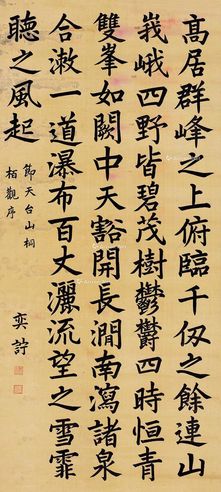 高居群峰之上俯臨千仞之餘連山
峩峨四野皆碧茂樹鬱鬱四時恒青
雙峯如闕中天豁開長澗南瀉諸泉
合漱一道瀑布百丈灑流望之雪霏
聽之風起
節天台山桐
栢觀序
奕訢